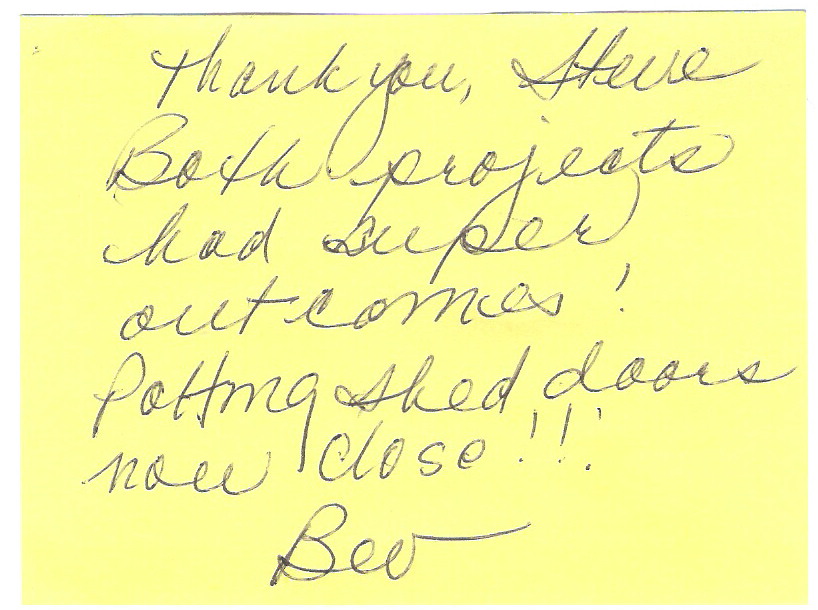 Thank you, Steve
Both projects
had super
outcomes!
Potting shed doors
now close!!!
Bev